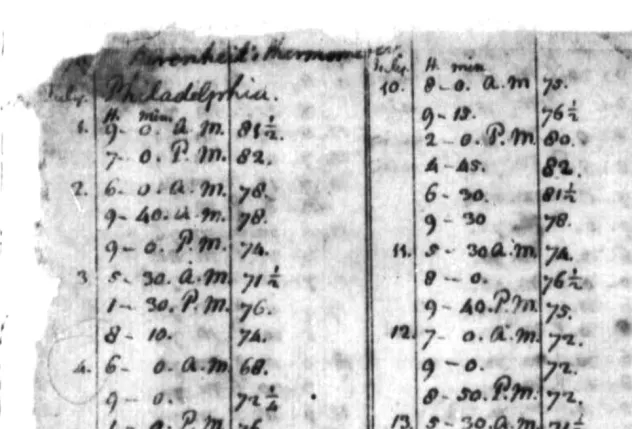 Farenheit's thermometer
July. Philadelphia.
H. min.
1. 9- 0. A.M. 81½.
7- 0. P.M. 82.
2. 6- 0. A.M. 78.
9- 40. A.M. 78.
9- 0. P.M. 74.
3 5- 30. A.M. 71½
1- 30. P.M. 76.
8- 10. 74.
4. 6- 0. A.M. 68.
9- 0. 72¼
1- 0. P.M. 76
July H. min
10. 8- 0. A.M 75.
9- 15. 76½
2- 0. P.M. 80.
4- 45. 82
6- 30. 81½
9- 30 78.
11. 5- 30 A.M. 74.
8- 0. 76½
9- 40. P.M. 75.
12. 7- 0. A.M. 72.
9- 0. 72.
8- 50. P.M. 72.
13. 5- 30. A.M. 71½